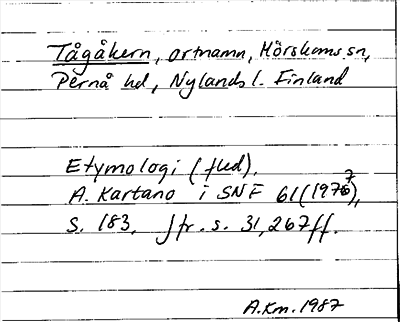 Tågåkern, ortnamn, Mörskoms sn,
Pernå hd, Nylands l. Finland
Etymologi (fled).
A. Kartano i SNF 61 (1977),
S. 183. Jfr. s. 31, 267ff.
A.Km. 1987